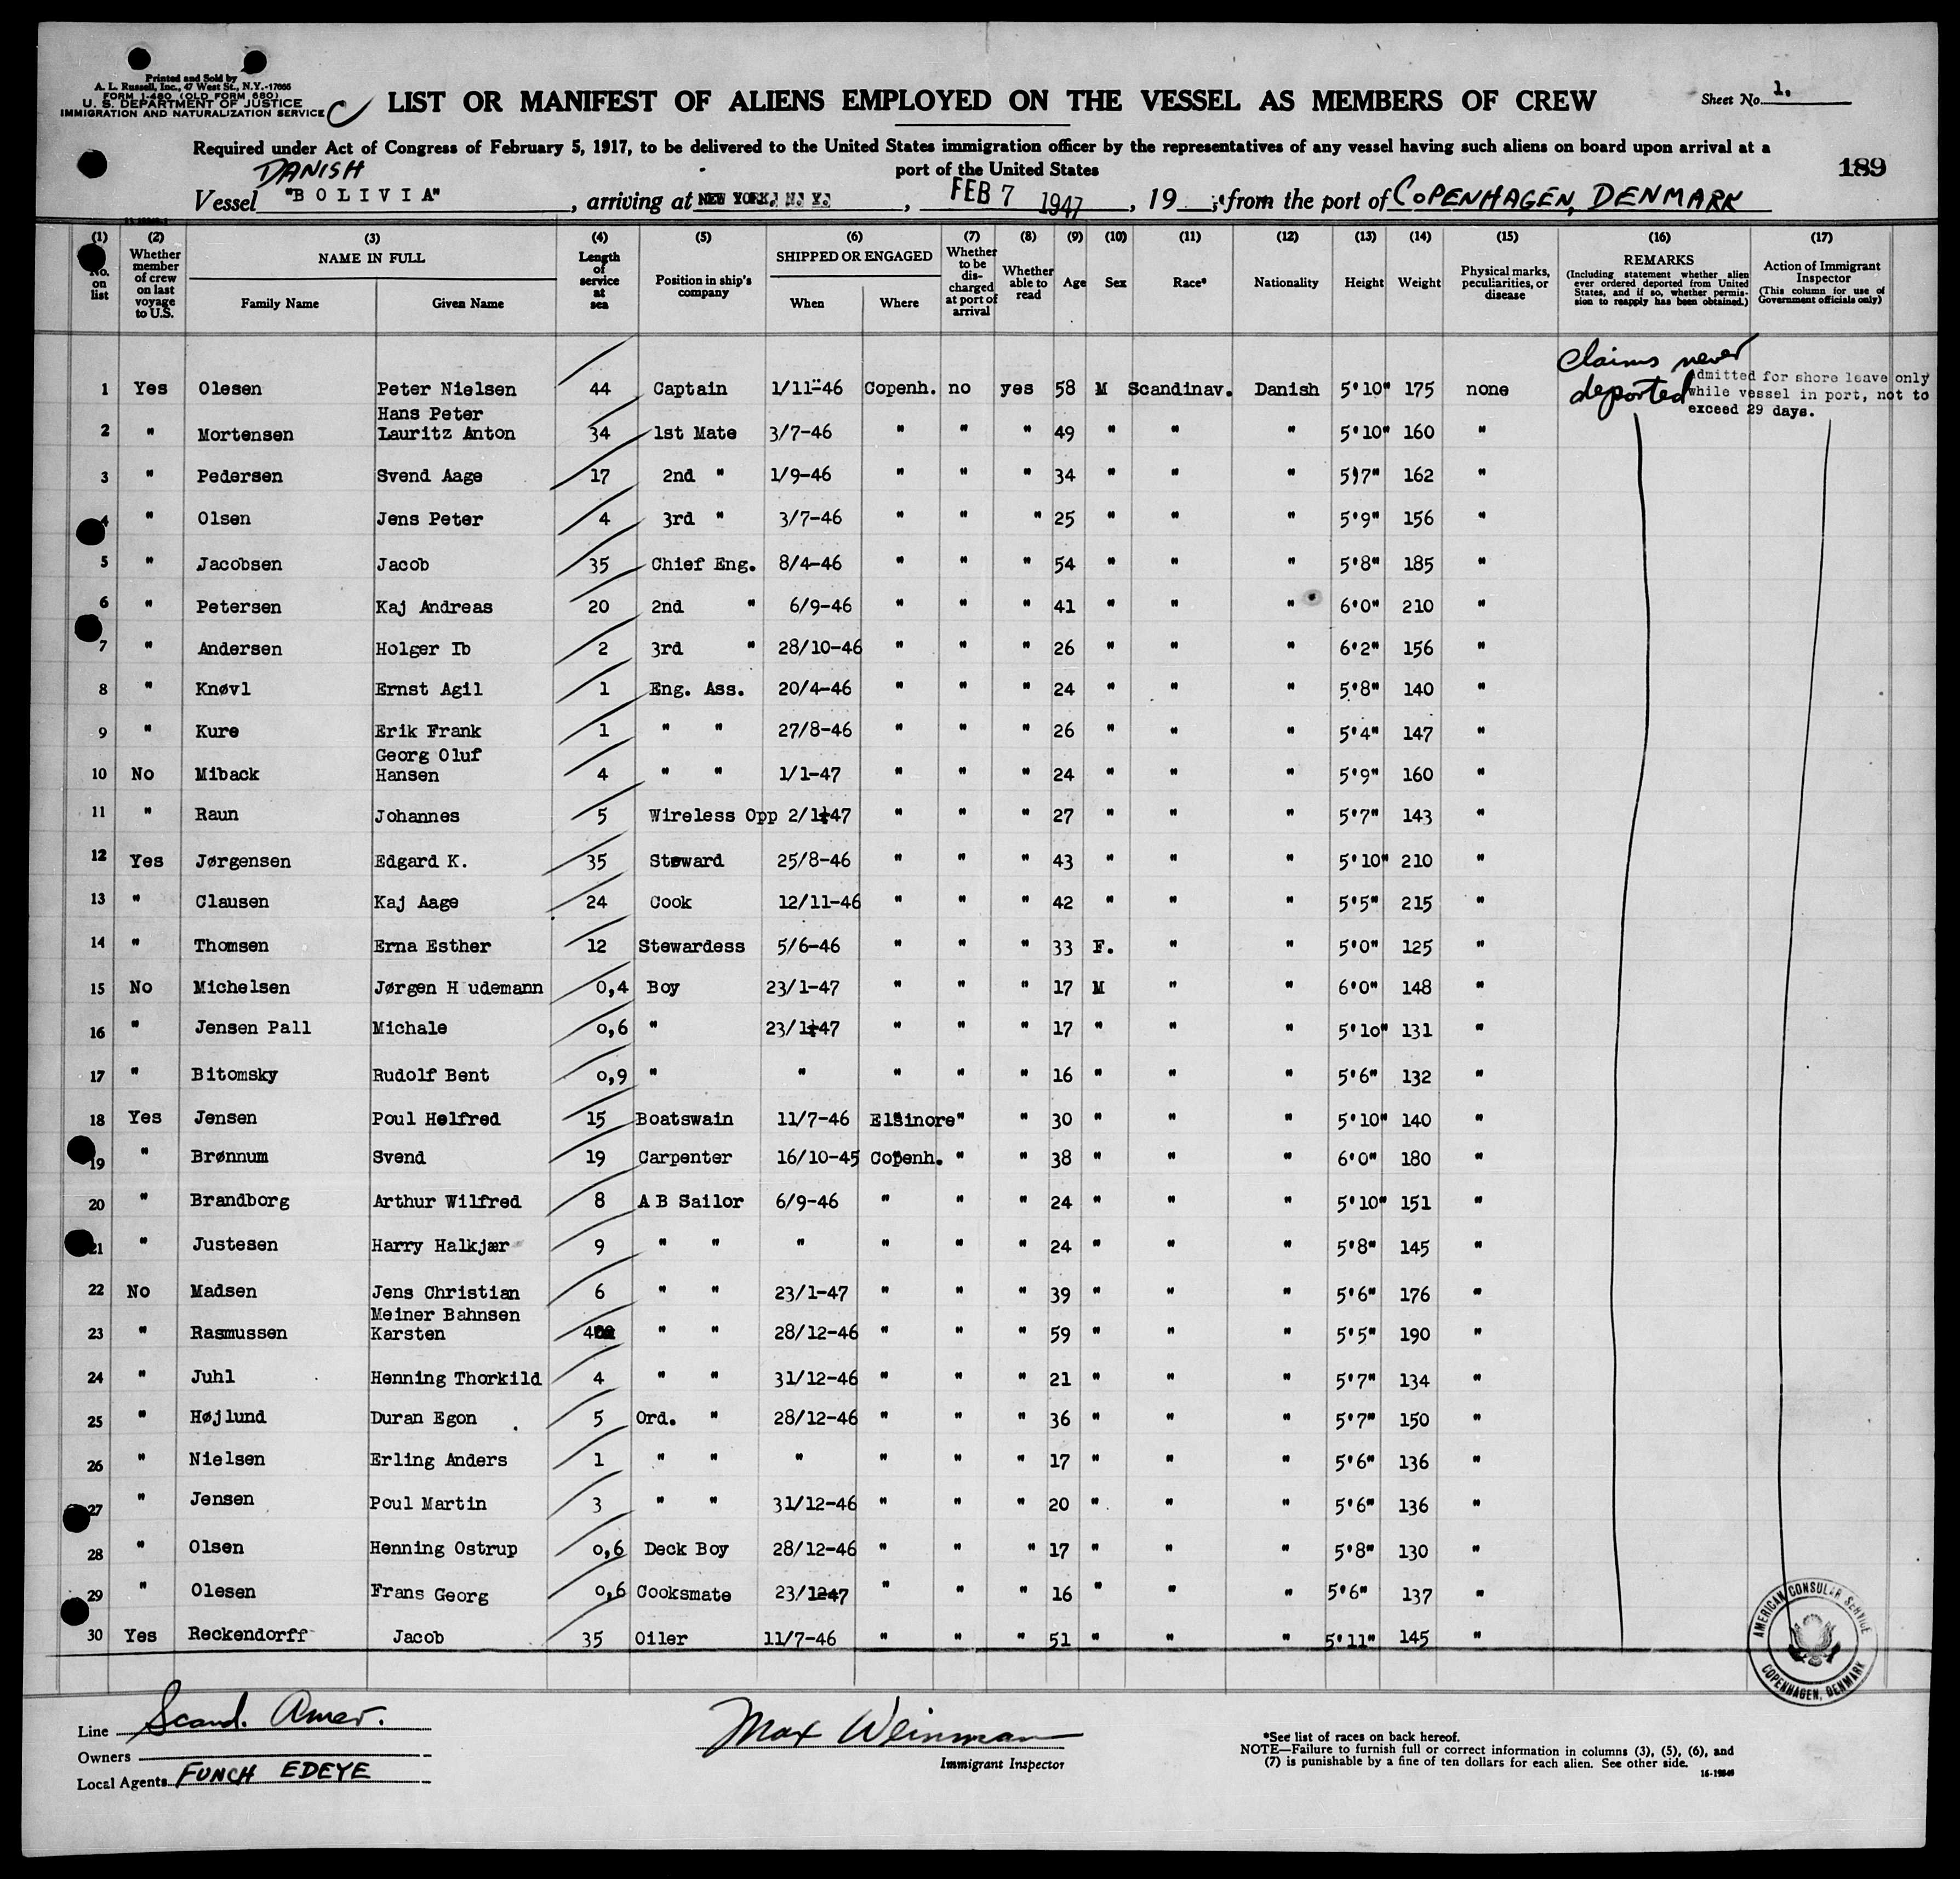 Printed and Sold by
A. L. Russell, Inc., 47 West St., N.Y.-17666
FORM I-480 (OLD FORM 680)
U. S. DEPARTMENT OF JUSTICE
IMMIGRATION AND NATURALIZATION SERVICE
C
LIST OR MANIFEST OF ALIENS EMPLOYED ON THE VESSEL AS MEMBERS OF CREW
Sheet No. 1.
Required under Act of Congress of February 5, 1917, to be delivered to the United States immigration officer by the representatives of any vessel having such aliens on board upon arrival at a
port of the United States
189
DANISH
Vessel "B O L I V I A", arriving at NEW YORK, N. Y., FEB 7 1947, 19, from the port of COPENHAGEN, DENMARK
(1) (2) (3) (4) (5) (6) (7) (8) (9) (10) (11) (12) (13) (14) (15) (16) (17)
No. on list
Whether member of crew on last voyage to U.S.
NAME IN FULL
Family Name
Given Name
Length of service at sea
Position in ship's company
SHIPPED OR ENGAGED
When
Where
Whether to be dis-charged at port of arrival
Whether able to read
Age
Sex
Race*
Nationality
Height
Weight
Physical marks, peculiarities, or disease
REMARKS
(Including statement whether alien ever ordered deported from United States, and if so, whether permis-sion to reapply has been obtained.)
Action of Immigrant Inspector
(This column for use of Government officials only)
Claims never
deported
admitted for shore leave only
while vessel in port, not to
exceed 29 days.
1 Yes Olesen Peter Nielsen 44 Captain 1/11-46 Copenh. no yes 58 M Scandinav. Danish 5'10" 175 none
2 " Mortensen Hans Peter Lauritz Anton 34 1st Mate 3/7-46 " " " 49 " " " 5'10" 160 "
3 " Pedersen Svend Aage 17 2nd " 1/9-46 " " " 34 " " " 5'7" 162 "
4 " Olsen Jens Peter 4 3rd " 3/7-46 " " " 25 " " " 5'9" 156 "
5 " Jacobsen Jacob 35 Chief Eng. 8/4-46 " " " 54 " " " 5'8" 185 "
6 " Petersen Kaj Andreas 20 2nd " 6/9-46 " " " 41 " " " 6'0" 210 "
7 " Andersen Holger Ib 2 3rd " 28/10-46 " " " 26 " " " 6'2" 156 "
8 " Knøvl Ernst Agil 1 Eng. Ass. 20/4-46 " " " 24 " " " 5'8" 140 "
9 " Kure Erik Frank 1 " " 27/8-46 " " " 26 " " " 5'4" 147 "
10 No Miback Georg Oluf Hansen 4 " " 1/1-47 " " " 24 " " " 5'9" 160 "
11 " Raun Johannes 5 Wireless Opp 2/1-47 " " " 27 " " " 5'7" 143 "
12 Yes Jørgensen Edgard K. 35 Steward 25/8-46 " " " 43 " " " 5'10" 210 "
13 " Clausen Kaj Aage 24 Cook 12/11-46 " " " 42 " " " 5'5" 215 "
14 " Thomsen Erna Esther 12 Stewardess 5/6-46 " " " 33 F. " " 5'0" 125 "
15 No Michelsen Jørgen H udemann 0,4 Boy 23/1-47 " " " 17 M " " 6'0" 148 "
16 " Jensen Pall Michale 0,6 " 23/1-47 " " " 17 " " " 5'10" 131 "
17 " Bitomsky Rudolf Bent 0,9 " " " " " 16 " " " 5'6" 132 "
18 Yes Jensen Poul Helfred 15 Boatswain 11/7-46 Elsinore " " 30 " " " 5'10" 140 "
19 " Brønnum Svend 19 Carpenter 16/10-45 Copenh. " " 38 " " " 6'0" 180 "
20 " Brandborg Arthur Wilfred 8 A B Sailor 6/9-46 " " " 24 " " " 5'10" 151 "
21 " Justesen Harry Halkjær 9 " " " " " " 24 " " " 5'8" 145 "
22 No Madsen Jens Christian 6 " " 23/1-47 " " " 39 " " " 5'6" 176 "
23 " Rasmussen Meiner Bahnsen Karsten " " 28/12-46 " " " 59 " " " 5'5" 190 "
24 " Juhl Henning Thorkild 4 " " 31/12-46 " " " 21 " " " 5'7" 134 "
25 " Højlund Duran Egon 5 Ord. " 28/12-46 " " " 36 " " " 5'7" 150 "
26 " Nielsen Erling Anders 1 " " " " " " 17 " " " 5'6" 136 "
27 " Jensen Poul Martin 3 " " 31/12-46 " " " 20 " " " 5'6" 136 "
28 " Olsen Henning Ostrup 0,6 Deck Boy 28/12-46 " " " 17 " " " 5'8" 130 "
29 " Olesen Frans Georg 0,6 Cooksmate 23/1-47 " " " 16 " " " 5'6" 137 "
30 Yes Reckendorff Jacob 35 Oiler 11/7-46 " " " 51 " " " 5'11" 145 "
AMERICAN CONSULAR SERVICE
COPENHAGEN, DENMARK
Line Scand. Amer.
Owners
Local Agents FUNCH EDEYE
Max Weinman
Immigrant Inspector
*See list of races on back hereof.
NOTE—Failure to furnish full or correct information in columns (3), (5), (6), and
(7) is punishable by a fine of ten dollars for each alien. See other side.